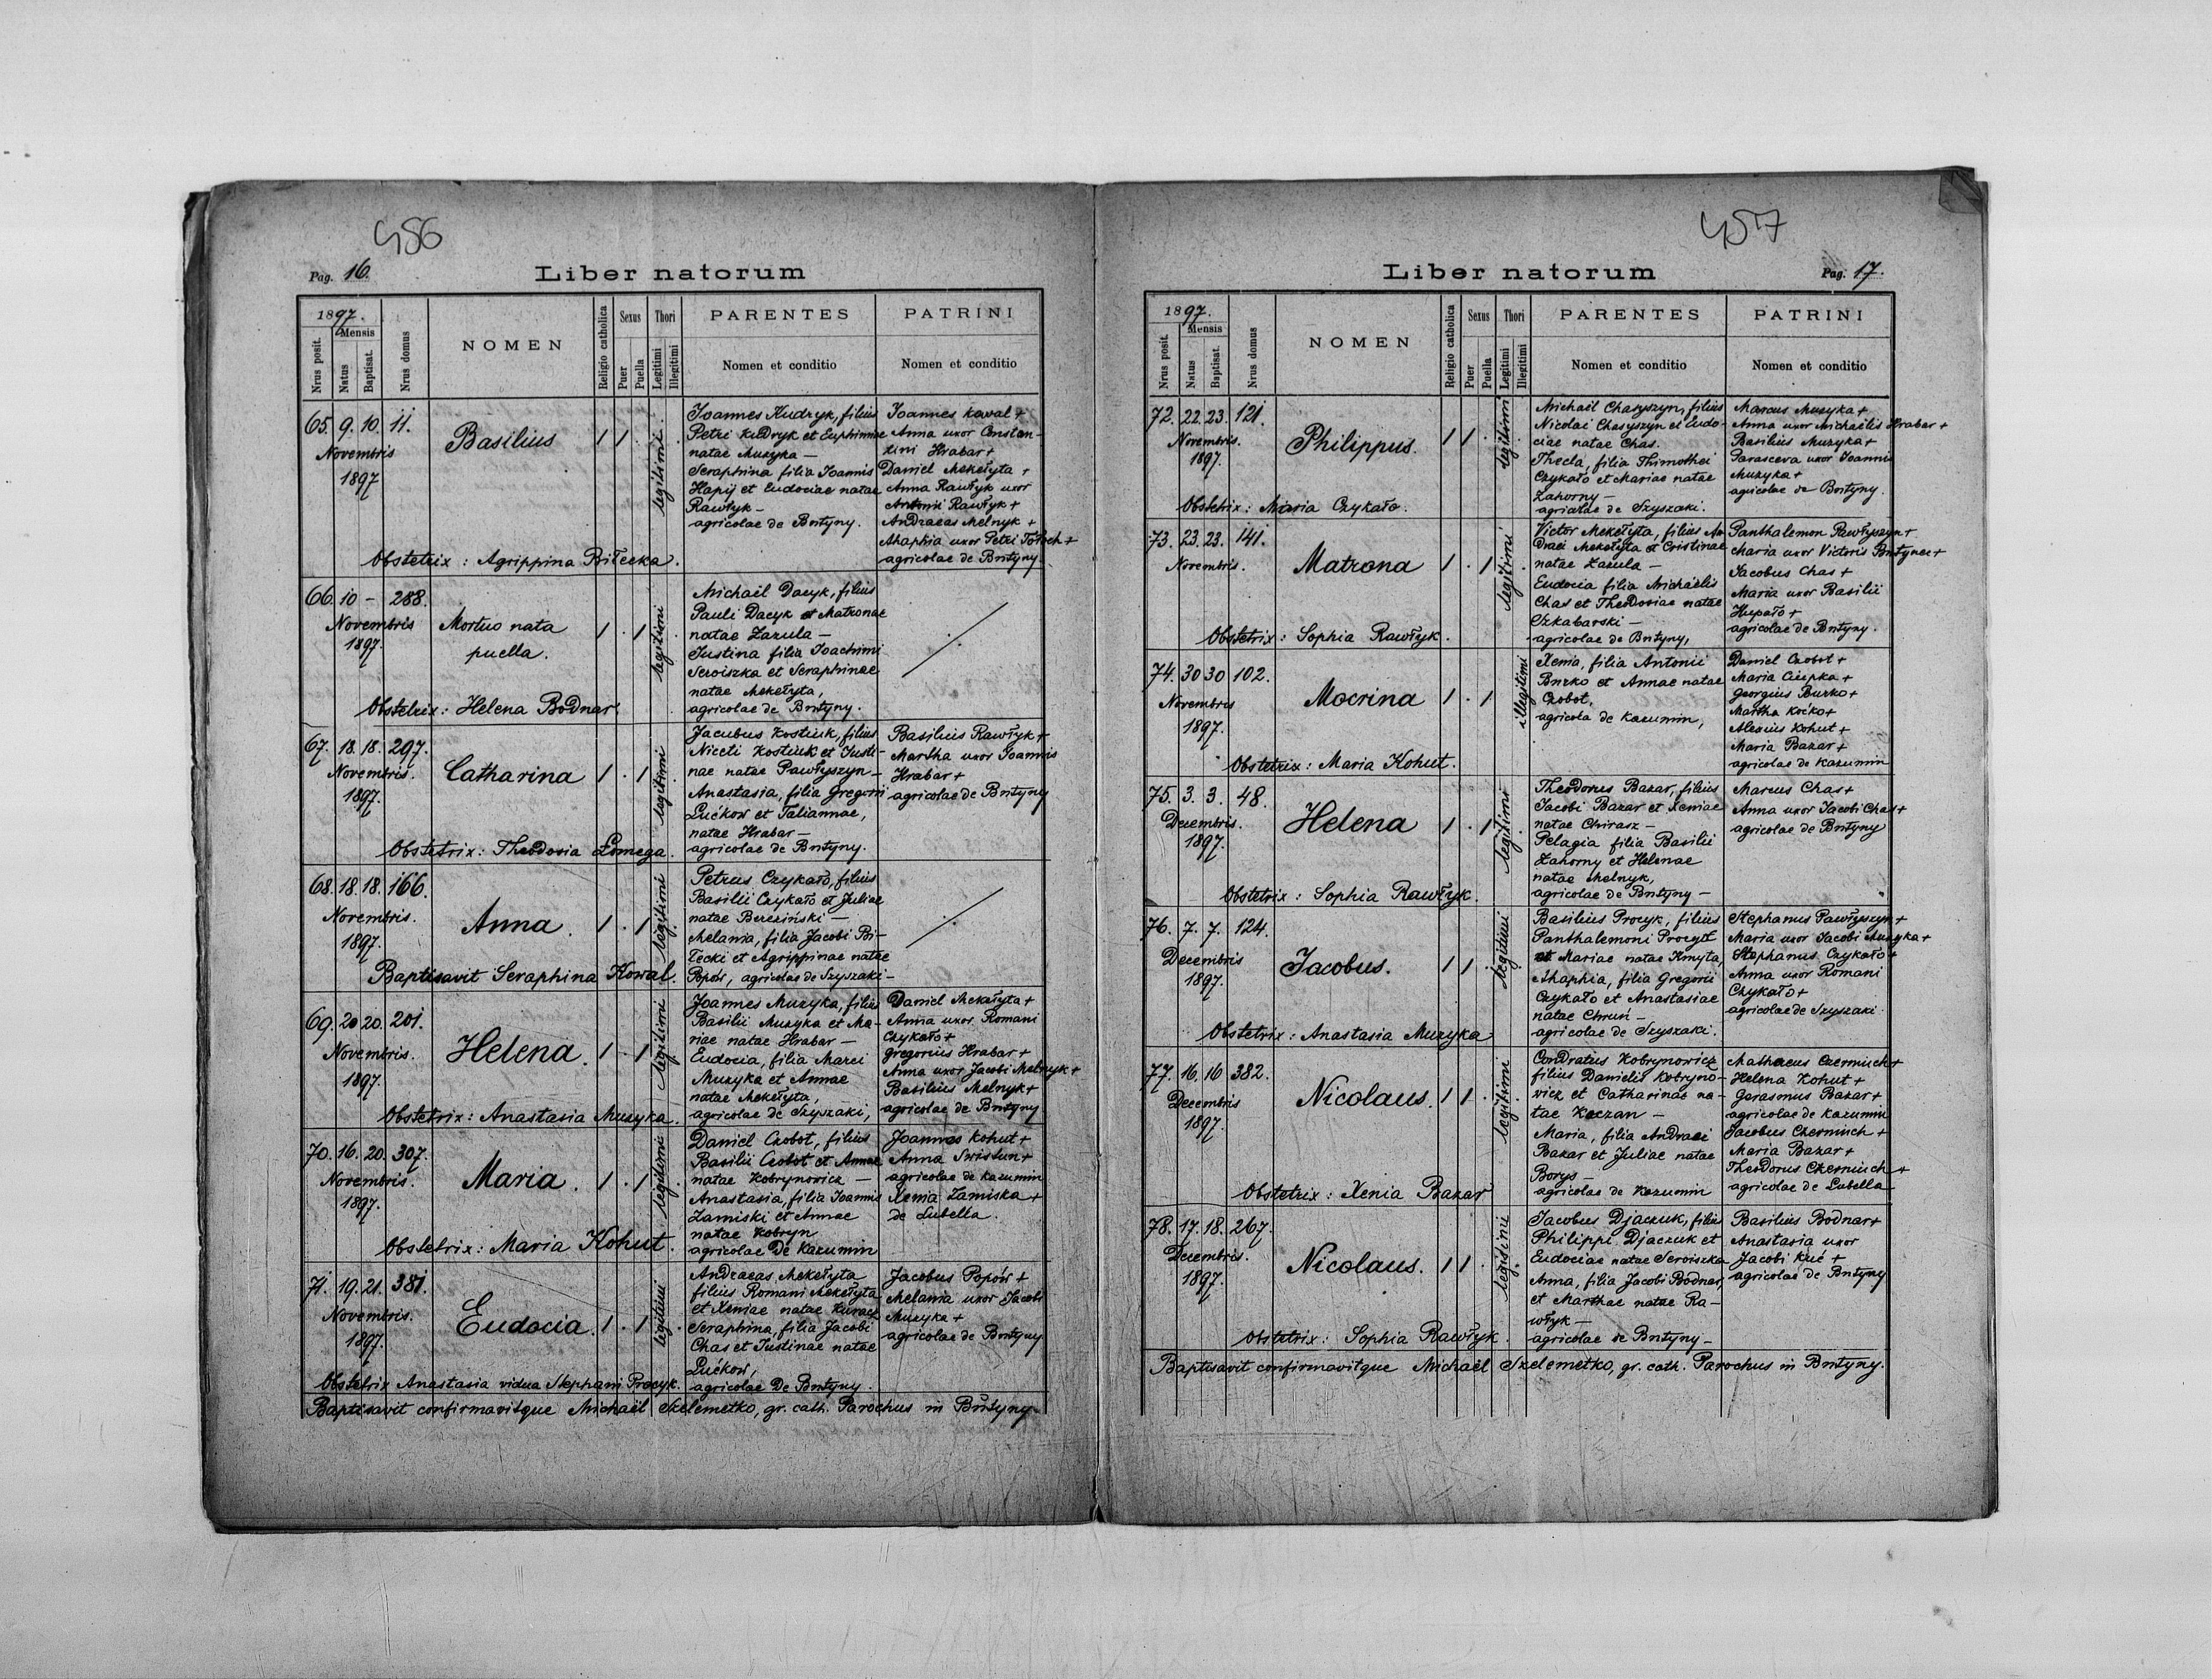 456
Pag. 16.
Liber natorum
1897.
Mensis
Nrus posit.
Natus
Baptisat.
Nrus domus
NOMEN
Religio catholica
Sexus
Puer
Puella
Thori
Legitimi
Illegitimi
PARENTES
Nomen et conditio
PATRINI
Nomen et conditio
65. 9. 10. 11.
Novembris
1897
Basilius
1 1 .
legitimi
Joannes Kudryk, filius
Petri Kudryk et Euphimiae
natae Muzyka —
Seraphina filia Joannis
Hapij et Eudociae natae
Rawłyk —
agricolae de Bntyny.
Joannes Kowal +
Anna uxor Constan-
tini Hrabar +
Daniel Mekełyta +
Anna Rawłyk uxor
Antonii Rawłyk +
Andraeas Melnyk +
Ahaphia uxor Petri
agricolae de Bntyny.
Obstetrix : Agrippina Biłecka.
66. 10 — 288.
Novembris
1897.
Mortuo nata
puella.
1 . 1
legitimi
Michaël Dacyk, filius
Pauli Dacyk et Matronae
natae Zazula —
Justina filia Joachimi
Seroiszka et Seraphinae
natae Mekełyta,
agricolae de Bntyny.
Obstetrix : Helena Bodnar.
67. 18. 18. 297.
Novembris.
1897.
Catharina
1 . 1
legitimi
Jacubus Kostiuk, filius
Niceti Kostiuk et Justi-
nae natae Pawłyszyn —
Anastasia, filia Gregorii
Łućkow et Taliannae,
natae Hrabar —
agricolae de Bntyny.
Basilius Rawłyk +
Martha uxor Joannis
Hrabar +
agricolae de Bntyny
Obstetrix : Theodosia Łomega.
68. 18. 18. 166.
Novembris.
1897.
Anna.
1 . 1
legitimi
Petrus Czykało, filius
Basilii Czykało et Juliae
natae Bereziński —
Melania, filia Jacobi Bi-
łecki et Agrippinae natae
Popów, agricolae de Szyszaki —
Baptisavit Seraphina Kowal.
69. 20 20. 201.
Novembris.
1897.
Helena.
1 . 1
legitimi
Joannes Muzyka, filius
Basilii Muzyka et Ma-
riae natae Hrabar —
Eudocia, filia Marci
Muzyka et Annae
natae Mekełyta,
agricolae de Szyszaki,
Daniel Mekełyta +
Anna uxor Romani
Czykało +
Gregorius Hrabar +
Anna uxor Jacobi Melnyk +
Basilius Melnyk +
agricolae de Bntyny
Obstetrix : Anastasia Muzyka.
70. 16. 20. 307.
Novembris.
1897.
Maria.
1 . 1
legitimi
Daniel Czobot, filius
Basilii Czobot et Annae
natae Kobrynowicz —
Anastasia, filia Joannis
Zamiski et Annae
natae Kobryn
agricolae de Kazumin
Joannes Kohut +
Anna Swistun +
agricolae de Kazumin
Xenia Zamiska +
de Lubella.
Obstetrix : Maria Kohut.
71. 19. 21. 381.
Novembris.
1897.
Eudocia.
1 . 1
legitimi
Andraeas Mekełyta
filius Romani Mekełyta
et Xeniae natae Kuracz
Seraphina, filia Jacobi
Chas et Justinae natae
Łućkow,
agricolae de Bntyny.
Jacobus Popów +
Melania uxor Jacobi
Muzyka +
agricolae de Bntyny
Obstetrix Anastasia vidua Stephani Procyk.
Baptisavit confirmavitque Michaël Szelemetko, gr. cath. Parochus in Bntyny.
457
Liber natorum
Pag. 17.
1897.
Mensis
Nrus posit.
Natus
Baptisat.
Nrus domus
NOMEN
Religio catholica
Sexus
Puer
Puella
Thori
Legitimi
Illegitimi
PARENTES
Nomen et conditio
PATRINI
Nomen et conditio
72. 22. 23. 121.
Novembris.
1897.
Philippus.
1 1 .
legitimi
Michaël Chasyszyn, filius
Nicolai Chasyszyn et Eudo-
ciae natae Chas.
Thecla, filia Thimothei
Czykało et Mariae natae
Zahorny —
agricolae de Szyszaki.
Marcus Muzyka +
Anna uxor Michaëlis Hrabar +
Basilius Muzyka +
Parasceva uxor Joannis
Muzyka +
agricolae de Bntyny.
Obstetrix : Maria Czykało.
73. 23. 23. 141.
Novembris.
Matrona
1 . 1
legitimi
Victor Mekełyta, filius An
draei Mekełyta et Cristinae
natae Zazula —
Eudocia filia Michaëlis
Chas et Theodosiae natae
Czkabarski —
agricolae de Bntyny,
Panthalemon Pawłyszyn +
Maria uxor Victoris Bntynec +
Jacobus Chas +
Maria uxor Basilii
Hupało +
agricolae de Bntyny.
Obstetrix : Sophia Rawłyk.
74. 30 30 102.
Novembris
1897.
Mocrina
1 . 1
illegitimi
Xenia, filia Antonii
Burko et Annae natae
Czobot,
agricola de Kazumin,
Daniel Czobot +
Maria Ciupka +
Georgius Burko +
Martha Koćko +
Alexius Kohut +
Maria Bazar +
agricolae de Kazumin
Obstetrix : Maria Kohut.
75. 3. 3. 48.
Decembris.
1897.
Helena
1 . 1
legitimi
Theodorus Bazar, filius
Jacobi Bazar et Xeniae
natae Chirasz —
Pelagia filia Basilii
Zahorny et Helenae
natae Melnyk,
agricolae de Bntyny —
Marcus Chas +
Anna uxor Jacobi Chas +
agricolae de Bntyny
Obstetrix : Sophia Rawłyk.
76. 7. 7. 124.
Decembris
1897.
Jacobus.
1 1 .
legitimi
Basilius Procyk, filius
Panthalemoni Procyk
et Mariae natae Kmyta,
Ahaphia, filia Gregorii
Czykało et Anastasiae
natae Chruń —
agricolae de Szyszaki.
Stephanus Pawłyszyn +
Maria uxor Jacobi Muzyka +
Stephanus Czykało +
Anna uxor Romani
Czykało +
agricolae de Szyszaki.
Obstetrix : Anastasia Muzyka
77. 16. 16 382.
Decembris
1897.
Nicolaus.
1 1 .
legitimi
Condratus Kobrynowicz
filius Danielis Kobryno-
wicz et Catharinae na-
tae Kaczan —
Maria, filia Andraei
Bazar et Juliae natae
Borys —
agricolae de Kazumin
Mathaeus Czerniuch +
Helena Kohut +
Garasmus Bazar +
agricolae de Kazumin
Jacobus Czerniuch +
Maria Bazar +
Theodorus Czerniuch +
agricolae de Lubella
Obstetrix : Xenia Bazar
78. 17. 18. 267.
Decembris.
1897.
Nicolaus.
1 1 .
legitimi
Jacobus Djaczuk, filius
Philippi Djaczuk et
Eudociae natae Seroiszka
Anna, filia Jacobi Bodnar,
et Marthae natae Ra-
włyk —
agricolae de Bntyny —
Basilius Bodnar +
Anastasia uxor
Jacobi Kuć +
agricolae de Bntyny
Obstetrix : Sophia Rawłyk.
Baptisavit confirmavitque Michaël Szelemetko, gr. cath. Parochus in Bntyny.